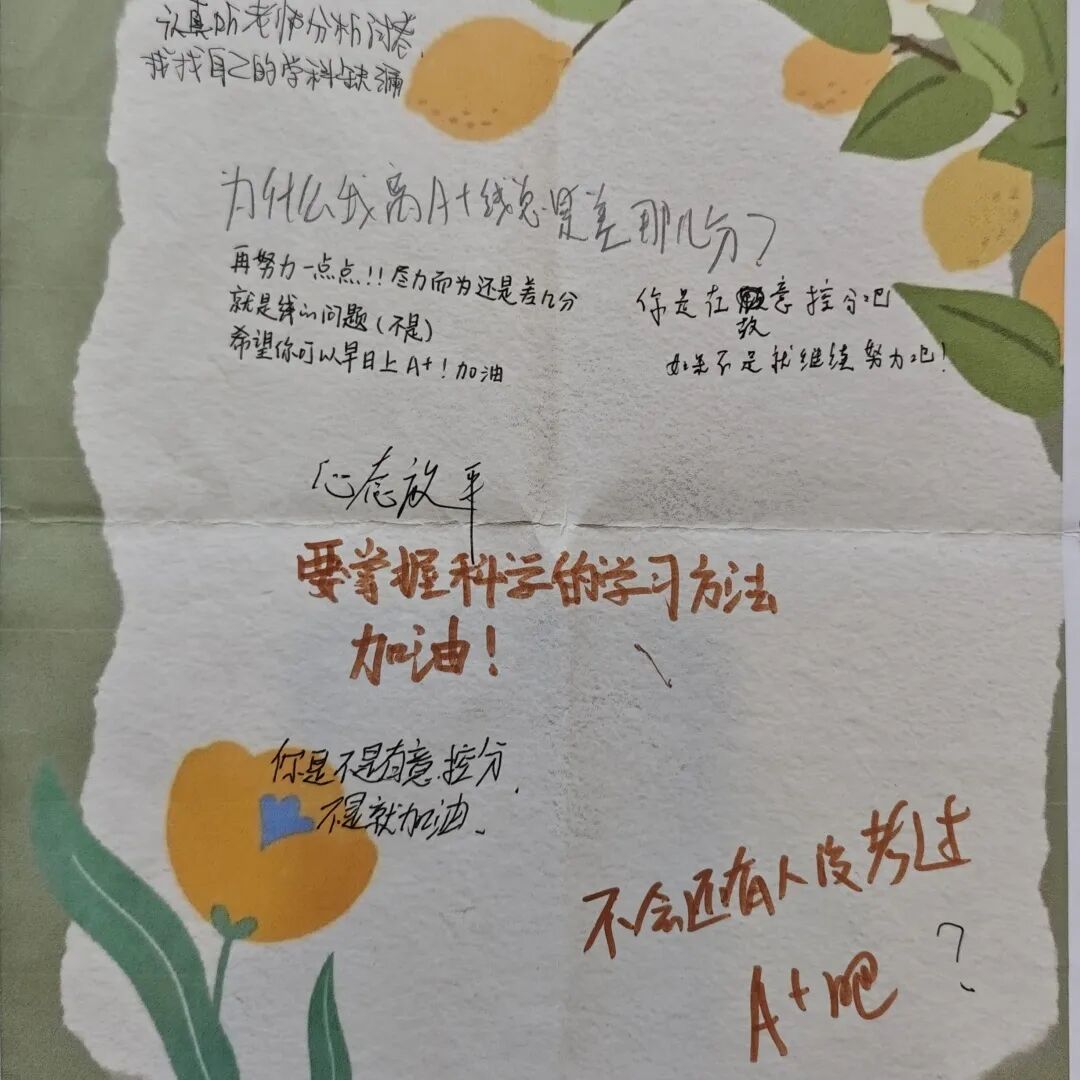 认真听老师分析问卷，
我找自己的学科缺漏
为什么我离A+线总是差那几分？
再努力一点点!!尽力而为还是差几分
就是线的问题(不是)
希望你可以早日上A+!加油
你是在故意控分吧
如果不是就继续努力吧!
心态放平
要掌握科学的学习方法
加油!
你是不是有意控分,
不是就加油、
不会还有人没考过
A+吧?